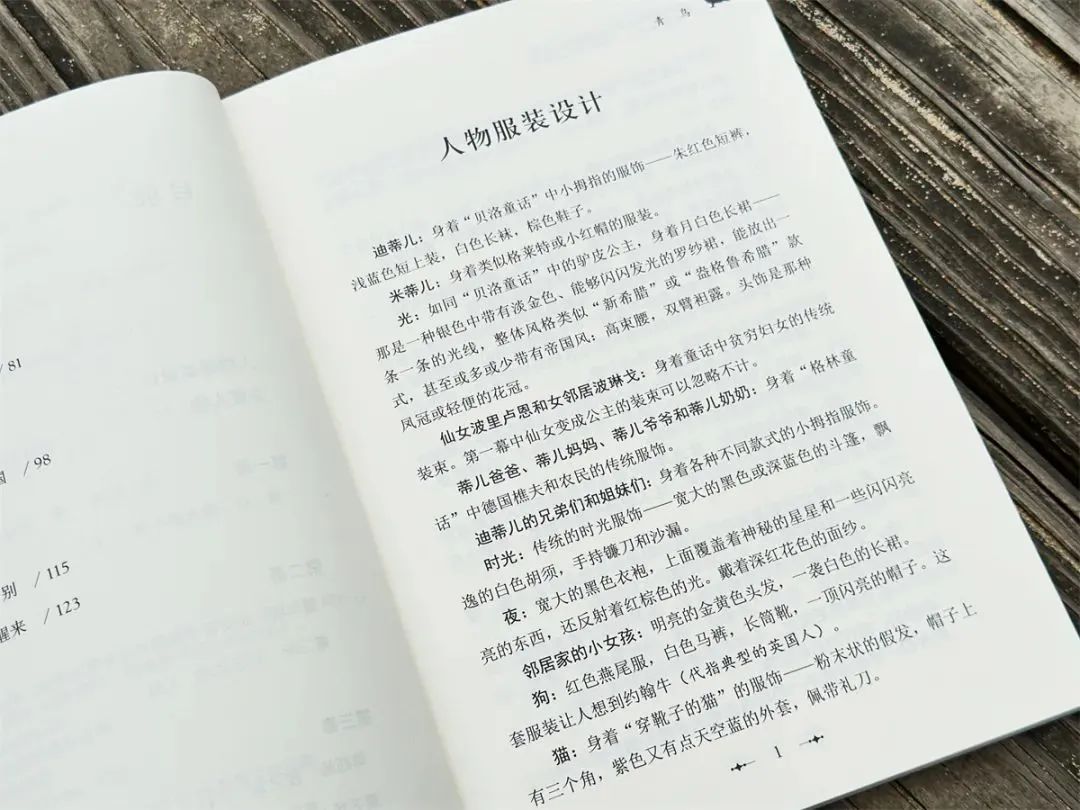 /81
国 /98
别 /115
醒来 /123
青鸟
人物服装设计
迪蒂儿：身着“贝洛童话”中小拇指的服饰——朱红色短裤，
浅蓝色短上装，白色长袜，棕色鞋子。
米蒂儿：身着类似格莱特或小红帽的服装。
光：如同“贝洛童话”中的驴皮公主，身着月白色长裙——
那是一种银色中带有淡金色、能够闪闪发光的罗纱裙，能放出一
条一条的光线，整体风格类似“新希腊”或“盎格鲁希腊”款
式，甚至或多或少带有帝国风：高束腰，双臂袒露。头饰是那种
凤冠或轻便的花冠。
仙女波里卢恩和女邻居波琳戈：身着童话中贫穷妇女的传统
装束。第一幕中仙女变成公主的装束可以忽略不计。
蒂儿爸爸、蒂儿妈妈、蒂儿爷爷和蒂儿奶奶：身着“格林童
话”中德国樵夫和农民的传统服饰。
迪蒂儿的兄弟们和姐妹们：身着各种不同款式的小拇指服饰。
时光：传统的时光服饰——宽大的黑色或深蓝色的斗篷，飘
逸的白色胡须，手持镰刀和沙漏。
夜：宽大的黑色衣袍，上面覆盖着神秘的星星和一些闪闪亮
亮的东西，还反射着红棕色的光。戴着深红花色的面纱。
邻居家的小女孩：明亮的金黄色头发，一袭白色的长裙。
狗：红色燕尾服，白色马裤，长筒靴，一顶闪亮的帽子。这
套服装让人想到约翰牛（代指典型的英国人）。
猫：身着“穿靴子的猫”的服饰——粉末状的假发，帽子上
有三个角，紫色又有点天空蓝的外套，佩带礼刀。
1